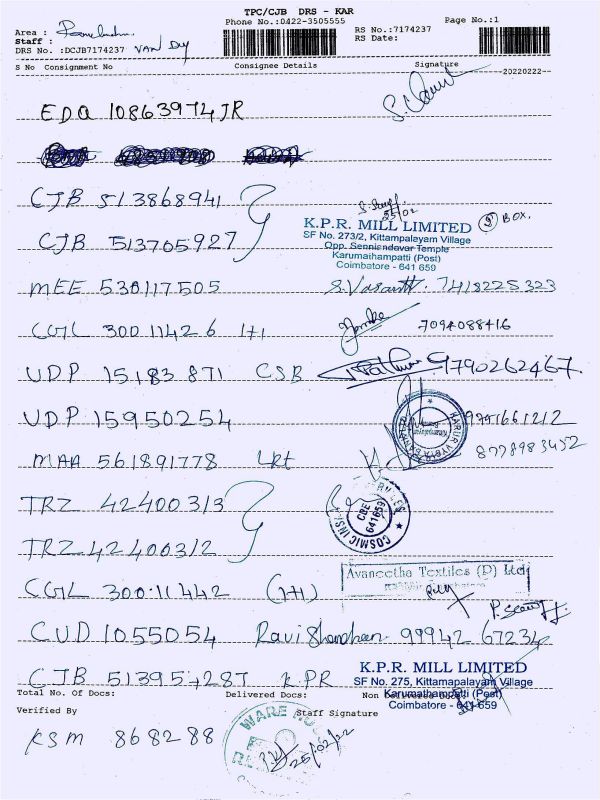 TPC/CJB DRS - KAR
Phone No.:0422-3505555 Page No.:1
Area :
Staff :
RS No.:7174237
RS Date:
DRS No.:DCJB7174237 VAN DUY
S No Consignment No Consignee Details Signature
20220222
EDQ 10863974 JR
CJB 513868941
25/02
CJB 513705927
K.P.R. MILL LIMITED 5 BOX.
SF No. 273/2, Kittampalayam Village
Opp. Senniandavar Temple
Karumathampatti (Post)
Coimbatore - 641 659
MEE 530117505 S.Vasanth. 7418225323
CGL 30011426 1+1 7094088416
UDP 15183871 CSB 9790262467.
UDP 15950254 9751661212
MAA 561891778 8778983452
TRZ 42400313
COSMIC INS
CBE
641659
TRZ 42400312
Avaneetha Textiles (P) Ltd
CGL 30011442 (1+1)
CUD 1055054 Ravi Shankar 99942 67234
CJB 513954287 KPR
K.P.R. MILL LIMITED
SF No. 275, Kittamapalayam Village
Karumathampatti (Post)
Coimbatore - 641 659
Total No. Of Docs: Delivered Docs:
Verified By Staff Signature
WARE HOUSE
KSM 868288 25/02/22